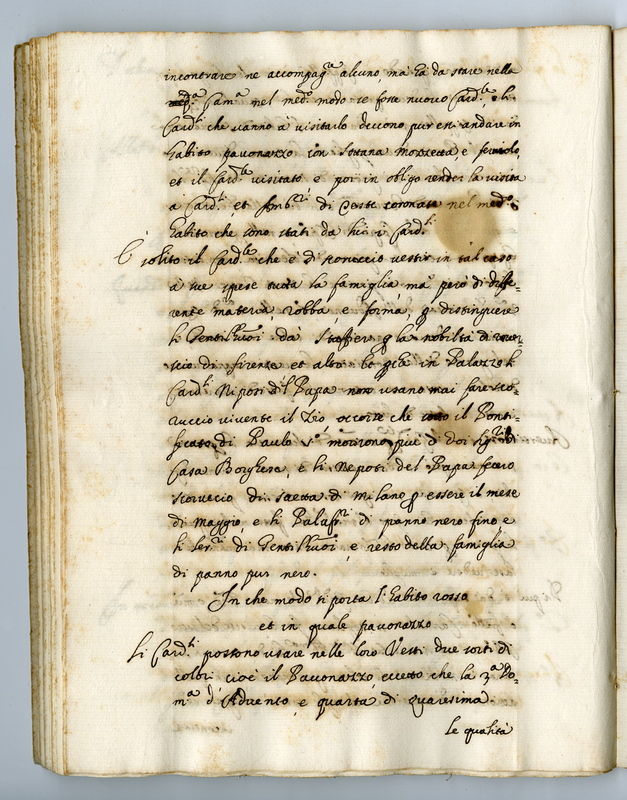 incontrare ne accompag.re alcuno, ma hà da stare nella
Cam.a nel med.o modo se fosse nuovo Card.le, e li
Card.li che vanno à visitarlo devono pur essi andare in
habito pavonazzo con sottana mozzetta, e
et il Card.le visitato è poi in obligo render la visita
a Card.li, et Amb.ri di Teste coronate nel med.o
habito che sono stati da lui i Card.li
È solito il Card.le che è di scoruccio vestir in tal caso
à sue spese tutta la famiglia, mà però di diffe=
rente materia, robba, e forma, p distinguere
li Gentilhuoi dà Staffieri p la nobiltà di
scio di firenze et altro in Palazzo li
Card.li Nipoti d'l Papa non usano mai fare sco=
ruccio vivente il Zio, eccette che sotto il Ponti=
ficato di Paulo V.o morirono più di doi Sig.ri di
Casa Borghese, e li Nepoti del Papa fecero
scoruccio di saetta di Milano p essere il mese
di Maggio, e li Palafr.ri di panno nero fino e
li Ser.ri di Gentilhuoi, e resto della famiglia
di panno pur nero.
In che modo si porta l'habito rosso
et in quale pavonazzo
Li Card.li possono usare nelle loro Vesti due sorti di
colori cioè il Pavonazzo, eccetto che la 3.a Do=
m.a d'Advento, e quarta di quaresima
le qualità